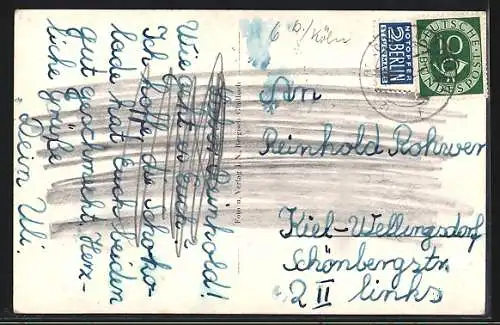 6 B./Köln
NOTOPFER
2 BERLIN
STEUERMARKE
DEUTSCHE BUNDESPOST
10
Lieber Reinhold!
Wie geht es Euch?
Ich hoffe, die Schoko-
lade hat Euch beiden
gut geschmeckt. Herz-
liche Grüße
Dein Uli.
Foto u. Verlag
An
Reinhold Rohwer
Kiel-Wellingsdorf
Schönbergstr.
2 II links